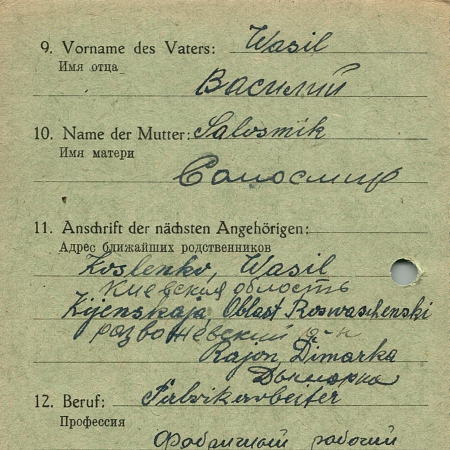 9. Vorname des Vaters: Wasil
Имя отца
Василий
10. Name der Mutter: Salosmik
Имя матери
11. Anschrift der nächsten Angehörigen:
Адрес ближайших родственников
Koslenko, Wasil
Киевская область
Kijenskaja Oblast Roswaschenski
розважевский р-н
Rajon, Dimarka
Дымарка
12. Beruf: Fabrikarbeiter
Профессия
Фабричный рабочий